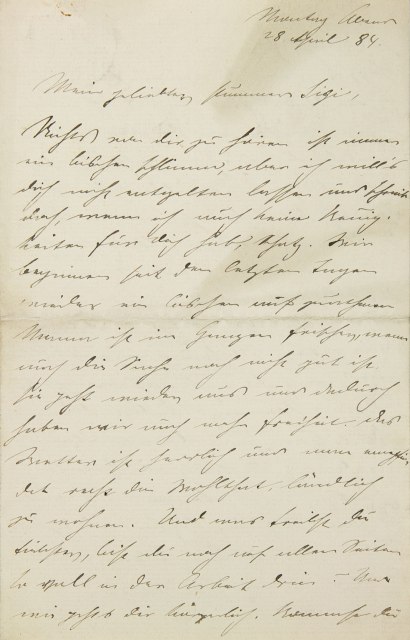 Montag Abend
28 April 84.
Mein geliebter, stummer Sigi,
Nichts von dir zu hören ist immer
ein bischen schlimm, aber ich will's
dich nicht entgelten lassen und schreib
doch, wenn ich auch keine Neuig-
keiten für dich hab, Schatz. Wir
beginnen seit den letzten Tagen
wieder ein bischen
Mama ist im Ganzen frischer, wenn
auch die noch nicht gut ist
Sie geht wieder aus und dadurch
haben wir auch mehr Freiheit. Das
Wetter ist herrlich und man empfin-
det recht die Wohlthat, ländlich
zu wohnen. Und was treibst du
Liebster, bist du noch auf allen Seiten
so voll in der Arbeit drin? Und
wie geht's dir körperlich. Kommst du